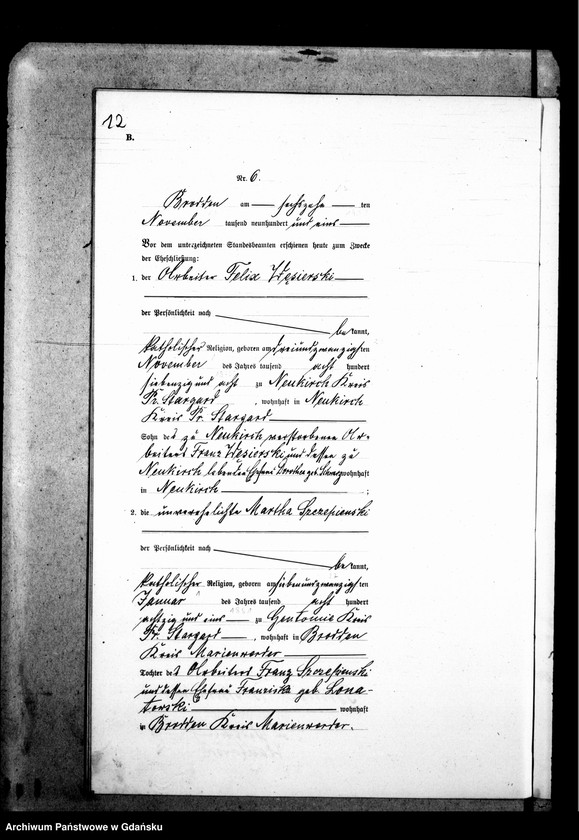 12
B.
Nr. 6.
Brodden am sechszehn ten
November tausend neunhundert und eins
Vor dem unterzeichneten Standesbeamten erschienen heute zum Zwecke
der Eheschließung:
1. der Arbeiter Felix Węsierski
der Persönlichkeit nach
be kannt,
katholischer Religion, geboren am dreiundzwanzigsten
November des Jahres tausend acht hundert
siebenzig und acht zu Neukirch Kreis
Pr. Stargard, wohnhaft in Neukirch
Kreis Pr. Stargard
Sohn des zu Neukirch verstorbenen Ar-
beiters Franz Węsierski und dessen zu
Neukirch lebenden Ehefrau Dorothea geb. wohnhaft
in Neukirch ;
2. die unverehelichte Martha Szczepienski
der Persönlichkeit nach
be kannt,
katholischer Religion, geboren am siebenundzwanzigsten
Januar des Jahres tausend acht hundert
achtzig und eins zu Gentomie Kreis
Pr. Stargard, wohnhaft in Brodden
Kreis Marienwerder
Tochter des Arbeiters Franz Szczepienski
und dessen Ehefrau Franziska geb. Lona-
torski wohnhaft
in Brodden Kreis Marienwerder.
Archiwum Państwowe w Gdańsku